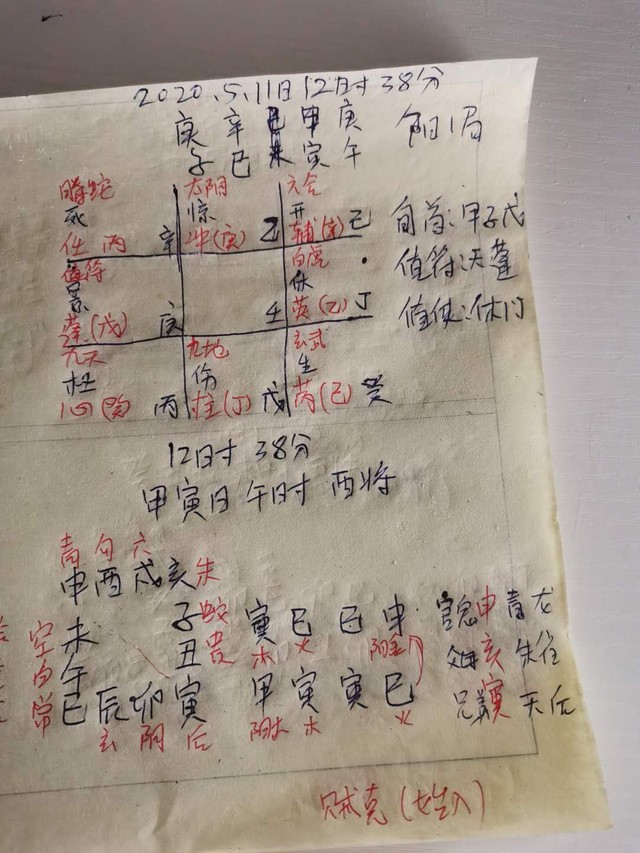 2020.5.11日12时38分
庚 辛 己 甲 庚 阳1局
子 巳 未 寅 午
腾蛇 太阴 六合
死 惊 开 旬首:甲子戊
任 丙 辛 冲(庚) 乙 辅(辛) 己
值符 白虎 值符:天蓬
景 休
蓬(戊) 庚 壬 英(乙) 丁 值使:休门
九天 九地 玄武
杜 伤 生
心(癸) 丙 柱(丁) 戊 芮(己) 癸
12时38分
甲寅日 午时 酉将
青 勾 六
申 酉 戌 亥 朱
空 未 子 蛇 寅 巳 巳 申 官鬼 申 青龙
木 火 阳金
白 午 丑 贵 父母 亥 朱雀
常 巳 辰 卯 寅 甲 寅 寅 巳 兄弟 寅 天后
玄 阴 后 阳木 木 火
贼克(始入)